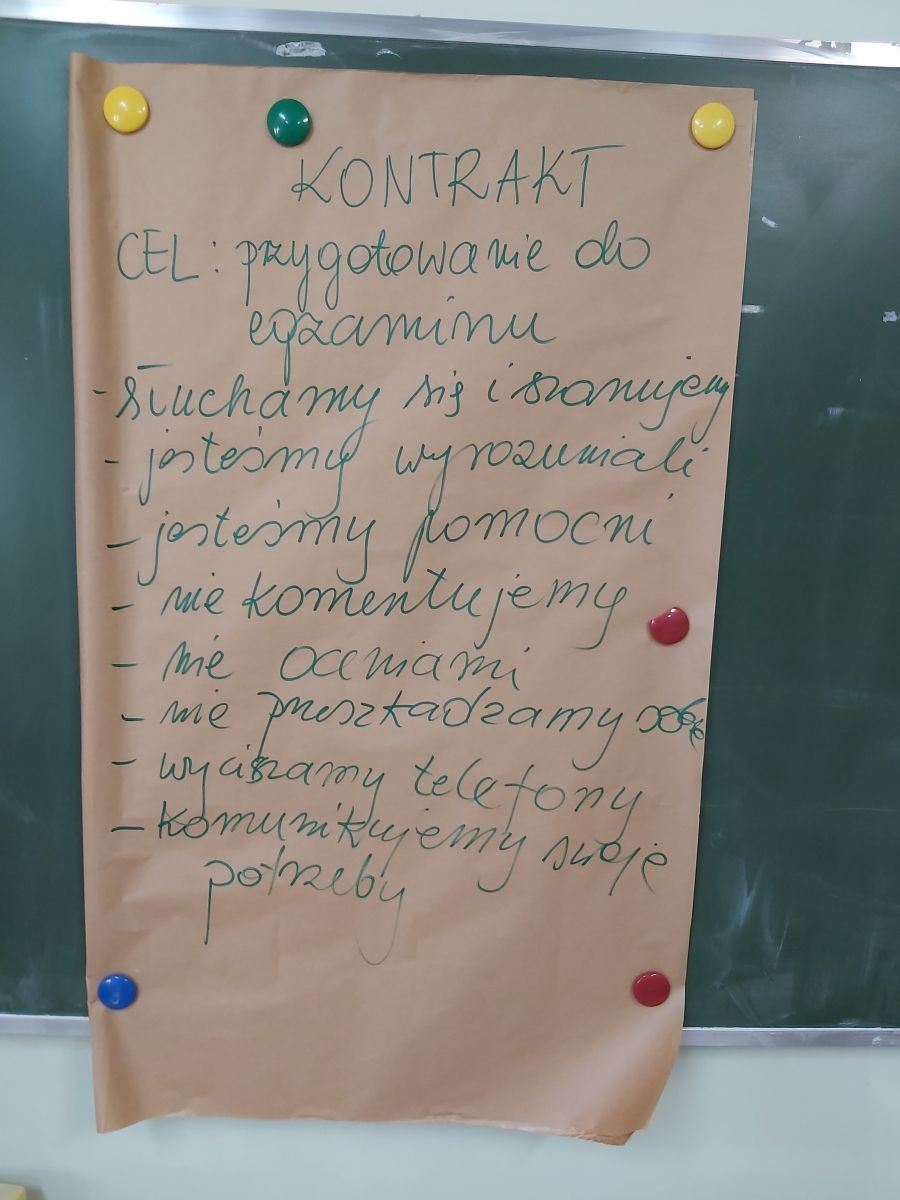 KONTRAKT
CEL: przygotowanie do
egzaminu
- słuchamy się i szanujemy
- jesteśmy wyrozumiali
- jesteśmy pomocni
- nie komentujemy
- nie oceniamy
- nie przeszkadzamy sobie
- wyciszamy telefony
- komunikujemy swoje
potrzeby